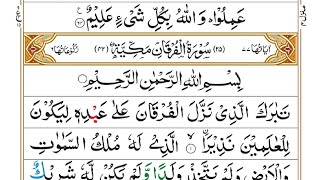 عَمِلُوْا ؕ وَ اللّٰهُ بِكُلِّ شَیْءٍ عَلِیْمٌ
اٰیَاتُهَا ۷۷ (۲۵) سُوْرَةُ الْفُرْقَانِ مَكِّیَّةٌ (۴۲) رُكُوْعَاتُهَا ۶
بِسْمِ اللّٰهِ الرَّحْمٰنِ الرَّحِیْمِ
تَبٰرَكَ الَّذِیْ نَزَّلَ الْفُرْقَانَ عَلٰی عَبْدِهٖ لِیَكُوْنَ
لِلْعٰلَمِیْنَ نَذِیْرَا ۙ ۱ الَّذِیْ لَهٗ مُلْكُ السَّمٰوٰتِ
وَ الْاَرْضِ وَ لَمْ یَتَّخِذْ وَلَدًا وَّ لَمْ یَكُنْ لَّهٗ شَرِیْكٌ